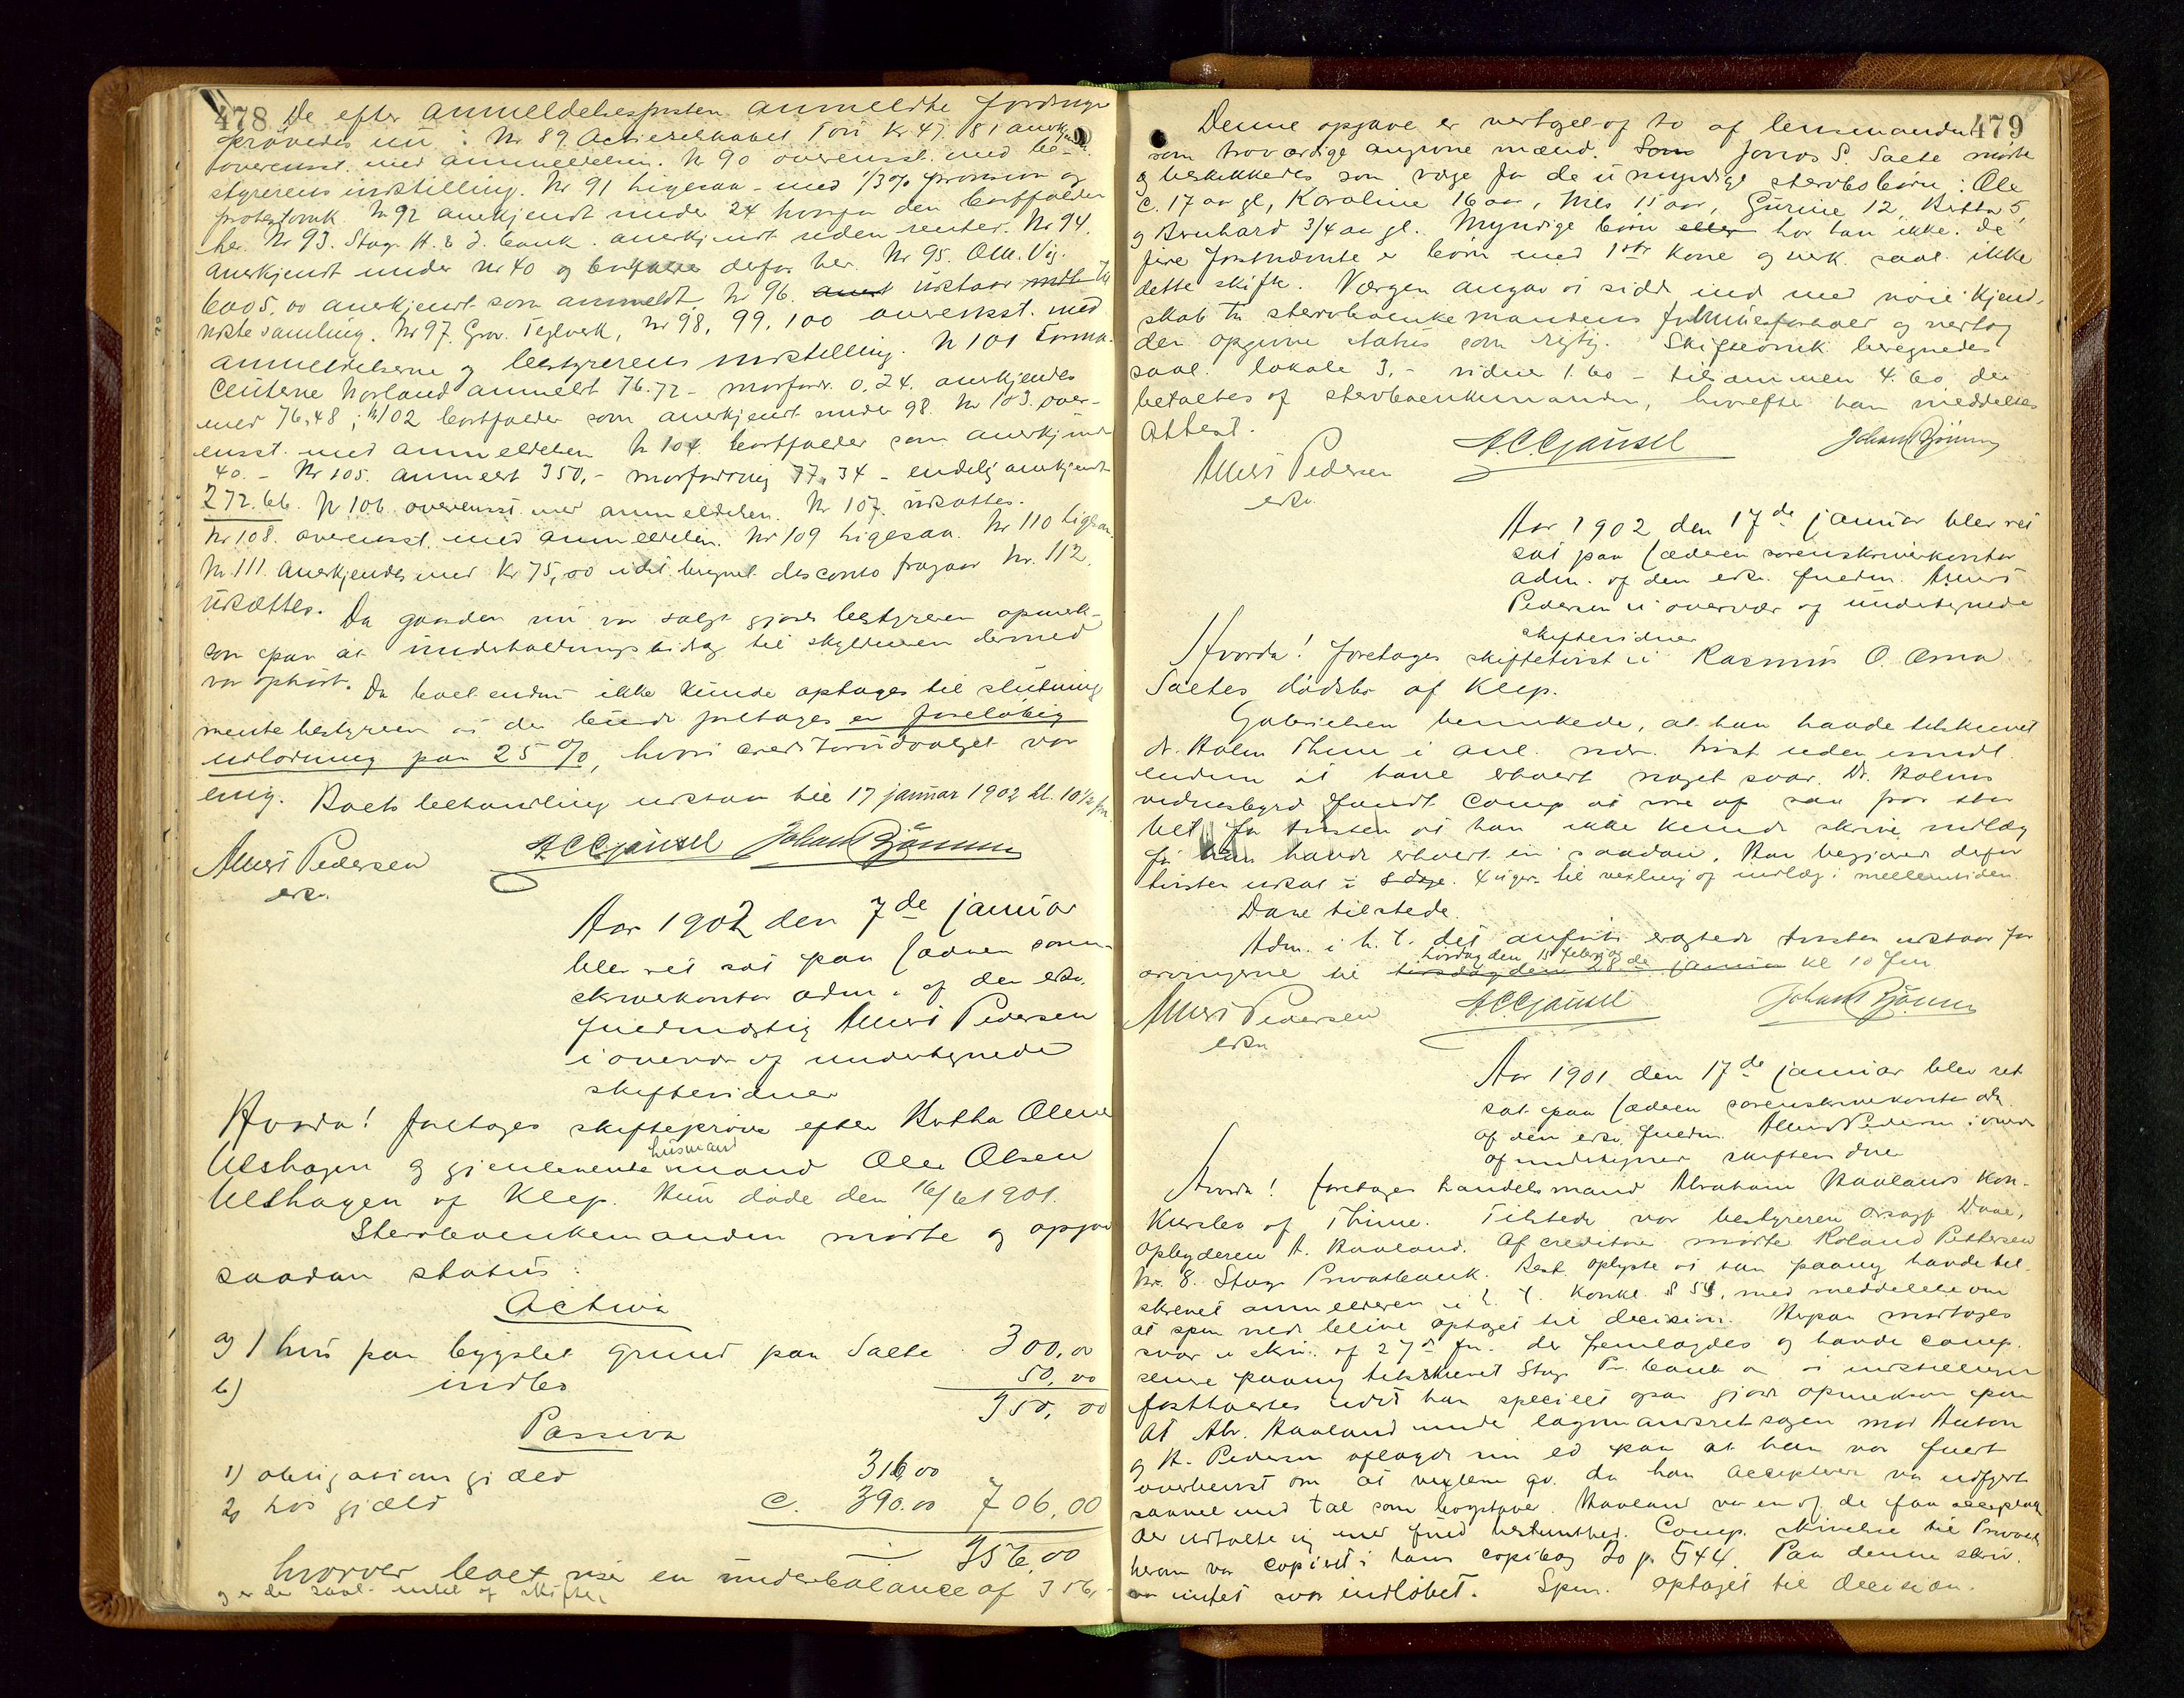 478
De efter anmeldelsesfristen anmeldte fordringer
prövedes nu: Nr 89 Actieselskabet Tou Kr 47.81 anerkj
overensst. med anmeldelsen. Nr 90 overensst. med be-
styrerens indstilling. Nr 91 ligesaa - med 1/3% provision og
protestomk. Nr 92 anerkjendt under 24 hvorfor den bortfalder
her. Nr 93. Stav. H. & I. bank. anerkjendt uden renter. Nr 94.
anerkjendt under nr 40 og bortfalder derfor her. Nr 95. Olk. Vig.
6005,00 anerkjendt som anmeldt. Nr 96. udstaar til
næste samling. Nr 97. Grav. Teglverk, nr 98, 99, 100 overensst. med
anmeldelserne og bestyrerens indstilling. Nr 101
Norland anmeldt 76.72 - modfordr. 0.24. anerkjendes
med 76.48; nr 102 bortfalder som anerkjendt under 98. Nr 103. over-
ensst. med anmeldelsen Nr 104. bortfalder som anerkjendt
40. - Nr 105. anmeldt 350,- modfordring 77.34 - endelig anerkjendt
272.66. Nr 106 overensst. med anmeldelsen. Nr 107 udsættes.
Nr 108. overensst. med anmeldelsen. Nr 109 ligesaa. Nr 110 ligesaa.
Nr 111. anerkjendes med Kr 75,00 idet beregnet disconto fragaar Nr. 112.
udsættes.
Da gaarden nu var solgt gjorde bestyreren opmerk-
som paa at underholdningsbidrag til skyldneren dermed
var ophørt.
Da boet endnu ikke kunde optages til slutning
mente bestyreren at der burde foretages en foreløbig
udlodning paa 25%, hvori creditorudvalget var
enig. Boets behandling udstaar til 17 januar 1902 kl. 10½ fm.
Pedersen
A. C. Gjausel
Johan Bjømme
esc.
Aar 1902 den 7de januar
blev ret sat paa Jæderen soren-
skriverkontor adm. af den esc.
fuldmægtig Pedersen
i overvær af undertegnede
skiftevidner
Hvorda! foretoges skifteprøve efter Bertha Oline
Ulshagen og gjenlevende husmand Ole Olsen
Ulshagen af Klep. Hun døde den 16/6 1901.
Stervboenkemanden mødte og opgav
saadan status:
Activa
a) 1 hus paa bygslet grund paa Salte 300,00
b) indbo 50,00
350,00
Passiva
1) obligationsgjæld 316,00
2) løs gjæld c. 390.00 706,00
356,00
hvorver boet viser en underbalance af 356,-
og er der saal. intet at skifte.
479
Denne opgave er vertaget af to af lensmanden
som troværdige angivne mænd. Som Jonas S. Salte mødte
og beskikkedes som værge for de umyndige stervbobørn: Ole
c. 17 aar gl, Karoline 16 aar, Nils 15 aar, Gurine 12, Bertha 5,
og Bernhard 3/4 aar gl. Myndige børn eller har han ikke. De
fire førstnævnte er børn med 1ste kone og vedk. saal. ikke
dette skifte. Værgen angav at sidde ind med nøie kjend-
skab til stervboenkemandens formuesforhold og vertog
den opgivne status som rigtig. Skifteomk. beregnedes
saal. lokale 3.- vidner 1.60 - tilsammen 4.60 der
betaltes af stervboenkemanden, hvorefter han meddeltes
attest.
Pedersen
A. C. Gjausel
Johan Bjømme
esc.
Aar 1902 den 17de januar blev ret
sat paa Jæderen sorenskriverkontor
adm. af den esc. fuldm.
Pedersen i overvær af undertegnede
skiftevidner
Hvorda! foretoges skiftetvist i Rasmus O. Oma
Saltes dødsbo af Klep.
Gabrielsen bemerkede, at han havde tilskrevet
dr. Holm Thime i anl. nærv. tvist uden imidl.
endnu at have erholdt noget svar. Dr. Holms
vidnesbyrd fandt comp at være af saa stor
for tvisten at han ikke kunde skrive indlæg
før han havde erholdt en saadan. Han begjærede derfor
tvisten udsat i 8 dage. 4 uger - til vexling af indlæg i mellemtiden.
Dave tilstede.
Adm. i h. t. det anførte eragtede tvisten udstaar for
arvingerne til lørdag den 15 februar tirsdag den 28de januar kl 10 fm
Pedersen
A. C. Gjausel
Johan Bjømme
esc.
Aar 1901 den 17de januar blev ret
sat paa Jæderen sorenskriverkontor adm.
af den esc. fuldm. Pedersen i overvær
af undertegnede skiftevidner
Hvorda! foretoges handelsmand Abraham Haalands kon-
kursbo af Thime. Tilstede var bestyreren orsagf. Dave,
opbyderen A. Haaland. Af creditorer mødte Roland Pettersen
Nr. 8. Stav. Privatbank. Best. oplyste at han paany havde til-
skrevet anmelderen i h. t. Konkl. § 54, med meddelelse om
at spm vilde blive optaget til decision. Herpaa modtoges
svar i skr. af 27de f. der fremlagdes og havde comp.
senere paany tilskrevet Stav. Pr. bank om at indstillingen
fastholdtes idet han specielt gjorde opmerksom paa
at Abr. Haaland under lagmandsretsagen mod Anton
og A. Pedersen aflagde sin ed paa at han var fuldt
overbevist om at vexlerne da han accepterede var udfyldt
saavel med tal som bogstaver. Haaland var en af de faa acceptanter
der udtalte sig med fuld bestemthed. Comp. skrivelse til Privatb.
herom var copieret i hans copibog 20 p. 544. Paa denne skriv.
var intet svar indløbet. Spm. optaget til decision.